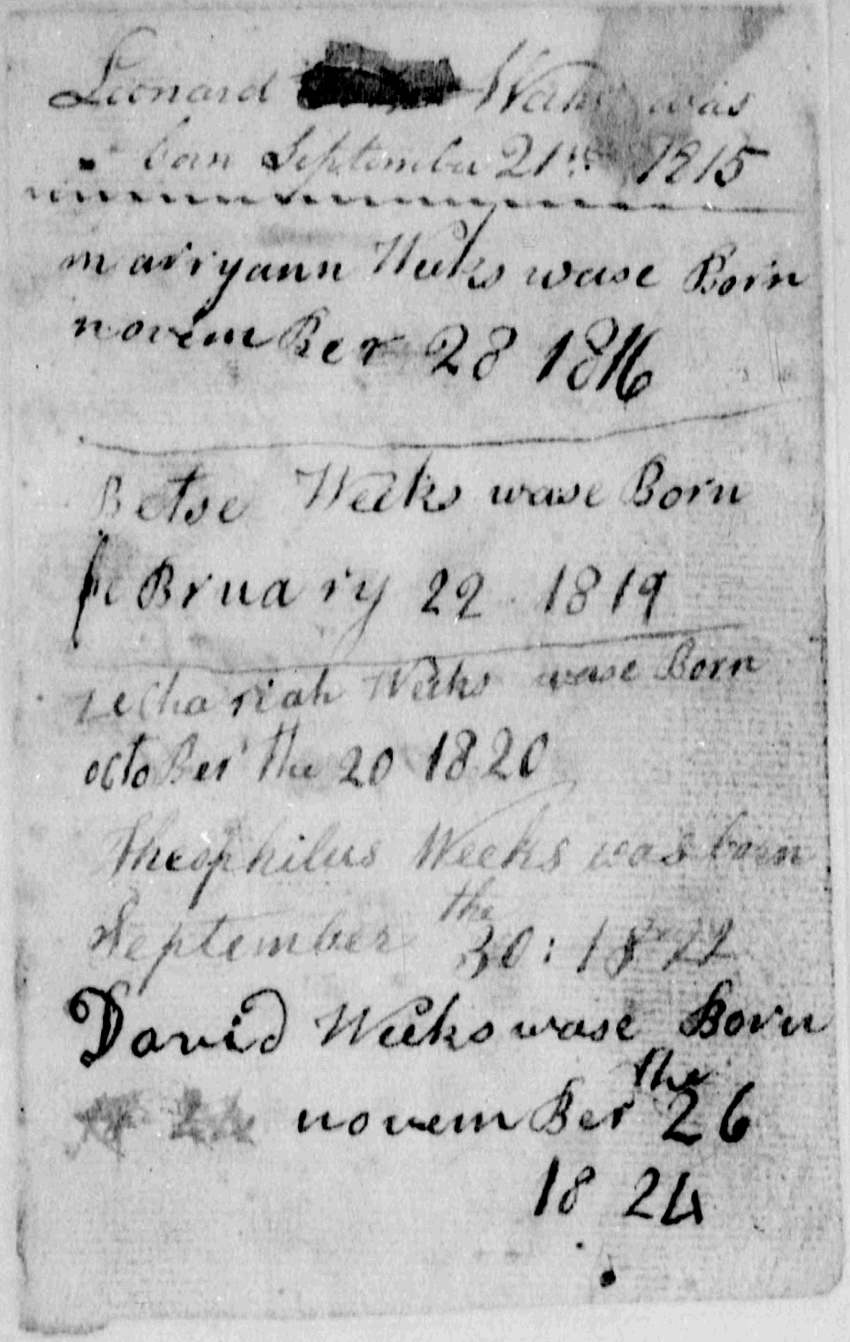 Leonard Weeks was
born September 21st 1815
marryann Weeks wase Born
novemBer 28 1816
Betse Weeks wase Born
feBruary 22 1819
Zechariah Weeks wase Born
octoBer the 20 1820
Theophilus Weeks was born
September the 30: 1822
David Weeks wase Born
novemBer the 26
18 24